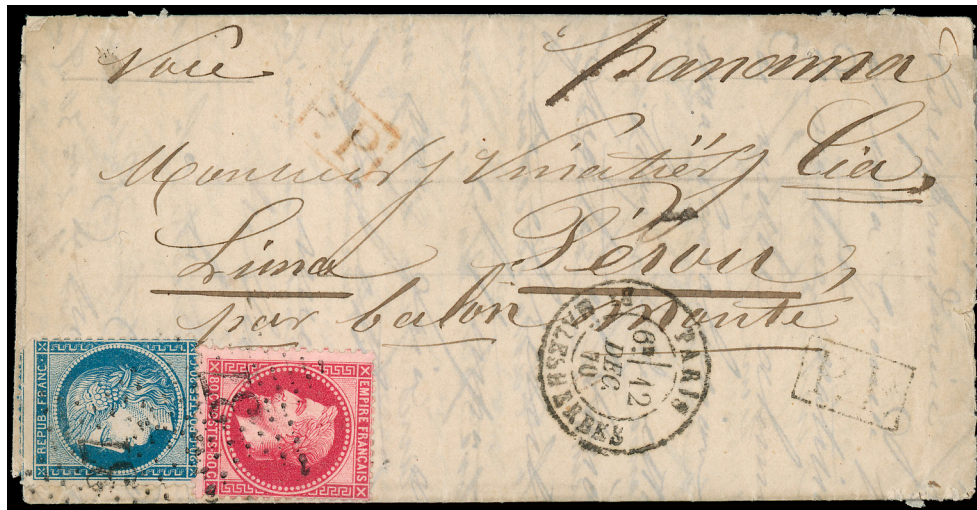 Voie panama
P.P.
Monsieur Vinatier Cia,
Lima Pérou,
par balon monté
PARIS
6E 12
DEC.
70
MALESHERBES
REPUB. FRANC.
EMPIRE FRANÇAIS